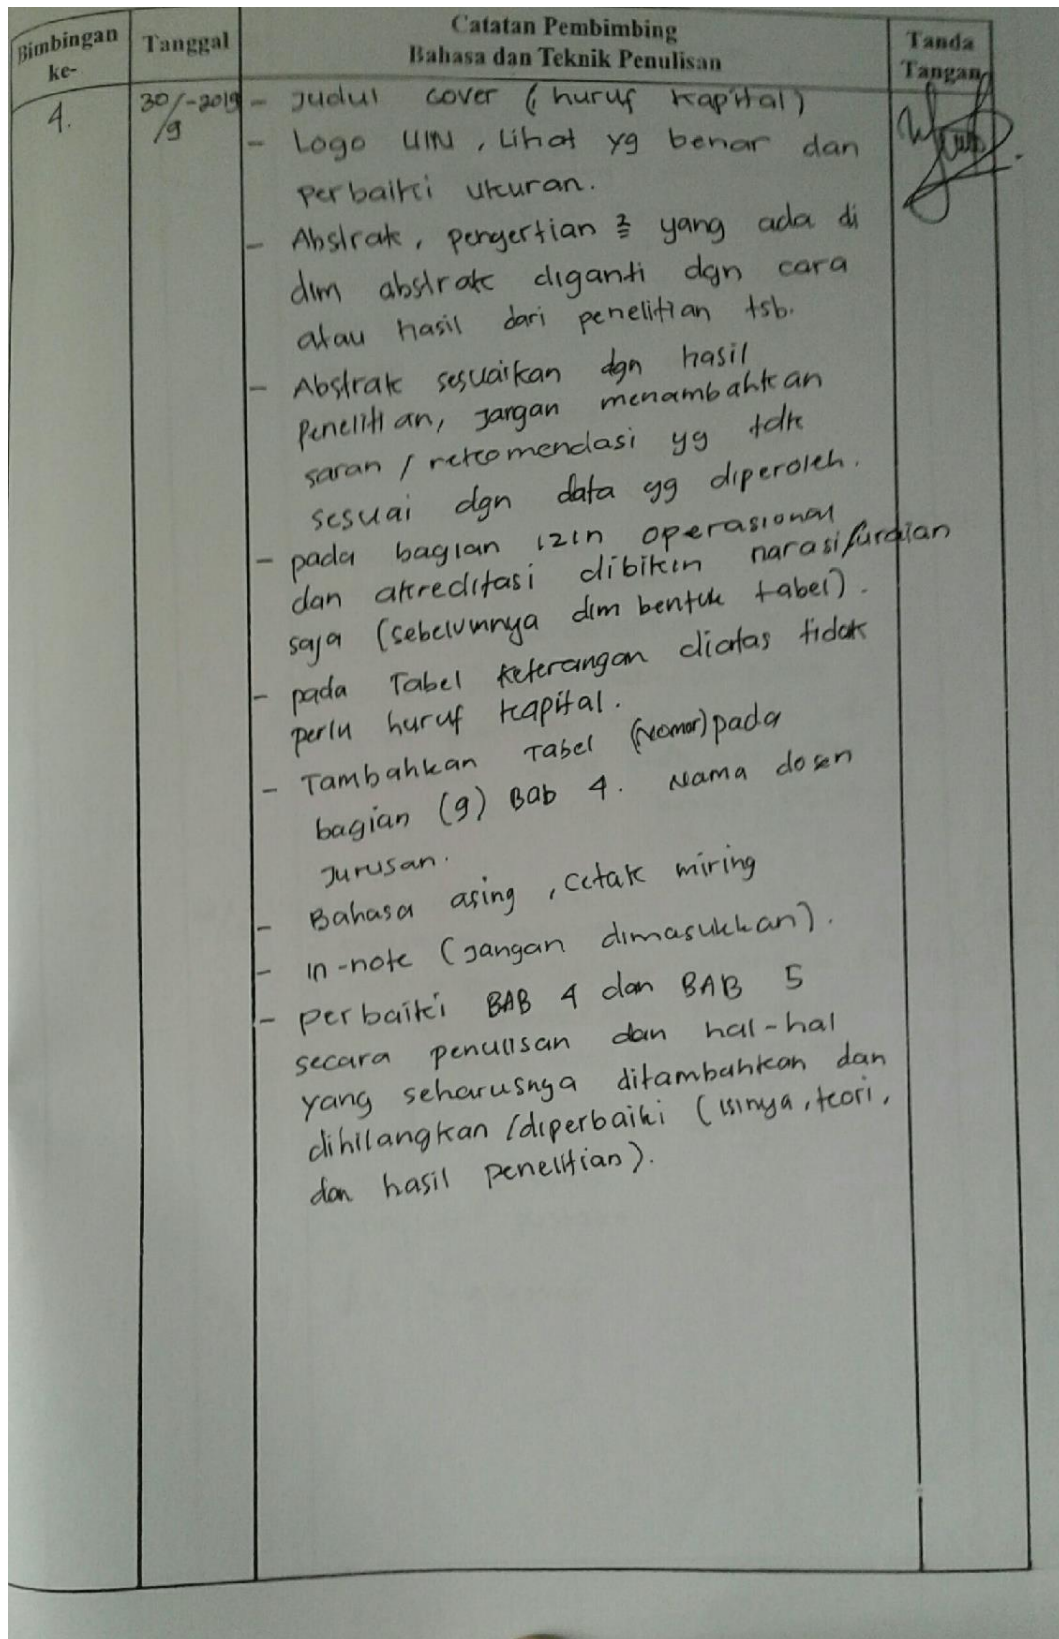 Bimbingan ke-
Tanggal
Catatan Pembimbing
Bahasa dan Teknik Penulisan
Tanda Tangan
4.
30/-2019
/9
- Judul cover (huruf kapital)
- Logo UIN, Lihat yg benar dan
perbaiki ukuran.
- Abstrak, pengertian 2 yang ada di
dlm abstrak diganti dgn cara
atau hasil dari penelitian tsb.
- Abstrak sesuaikan dgn hasil
Penelitian, Jangan menambahkan
saran / rekomendasi yg tdk
sesuai dgn data yg diperoleh.
- pada bagian izin operasional
dan akreditasi dibikin narasi/uraian
saja (sebelumnya dlm bentuk tabel).
- pada Tabel keterangan diatas tidak
perlu huruf kapital.
- Tambahkan Tabel (Nomor) pada
bagian (g) Bab 4. Nama dosen
Jurusan.
- Bahasa asing, cetak miring
- In-note (Jangan dimasukkan).
- Perbaiki BAB 4 dan BAB 5
secara penulisan dan hal-hal
yang seharusnya ditambahkan dan
dihilangkan /diperbaiki (isinya, teori,
dan hasil penelitian).